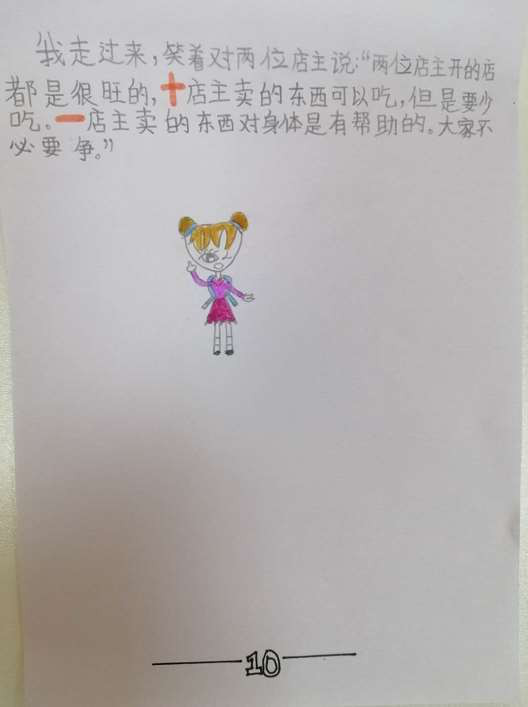 我走过来，笑着对两位店主说："两位店主开的店
都是很旺的，十店主卖的东西可以吃，但是要少
吃。一店主卖的东西对身体是有帮助的。大家不
必要争。"
10